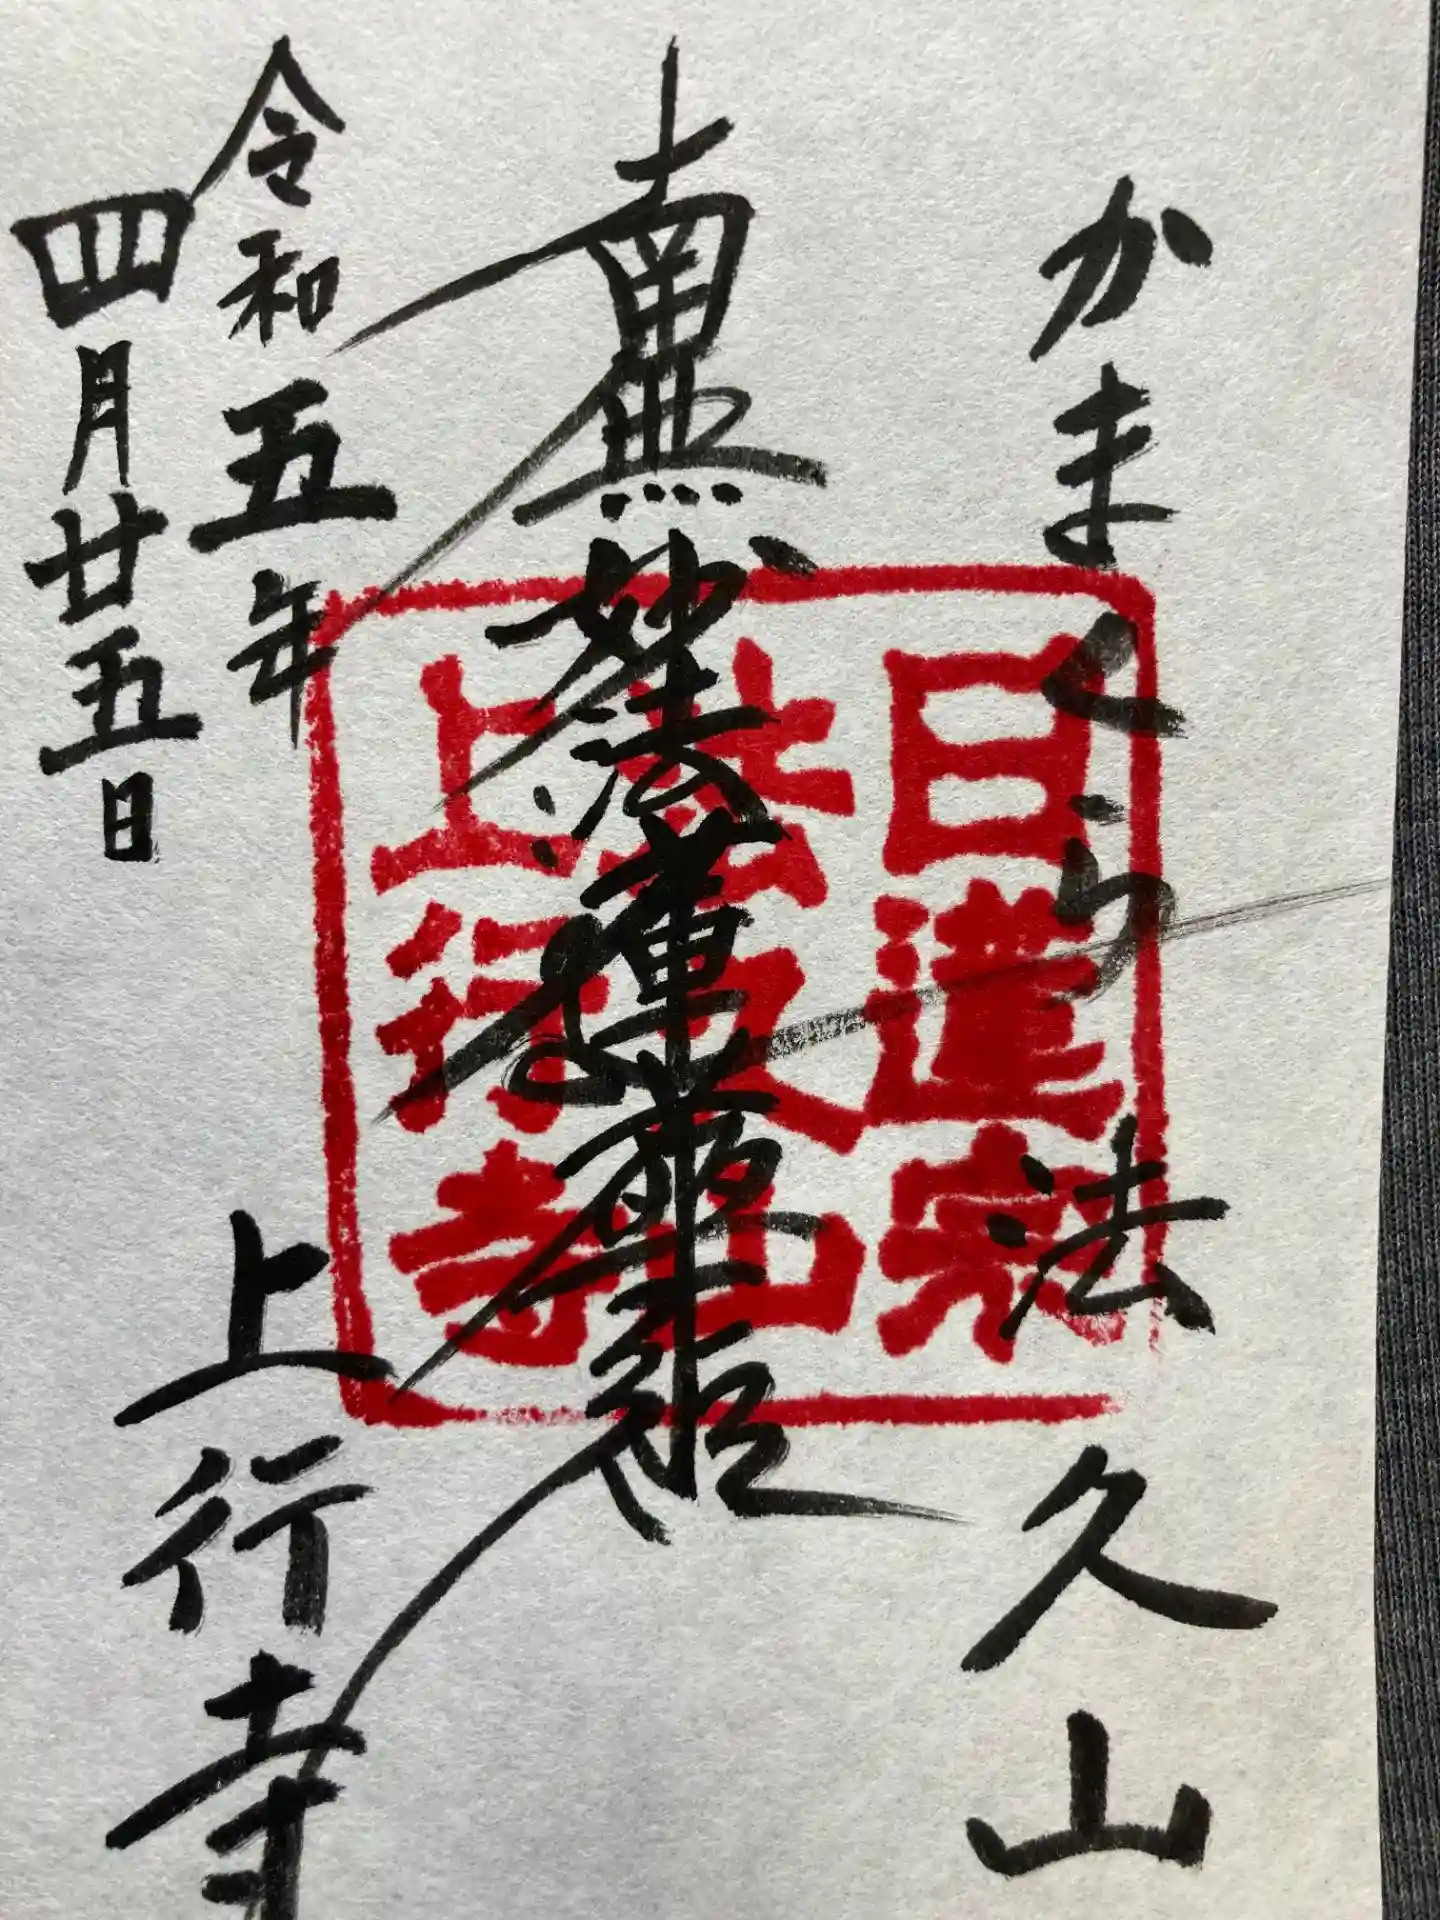 かまくら 法久山
南無妙法蓮華経
日蓮宗
法久山
上行寺
令和五年
四月廿五日
上行寺